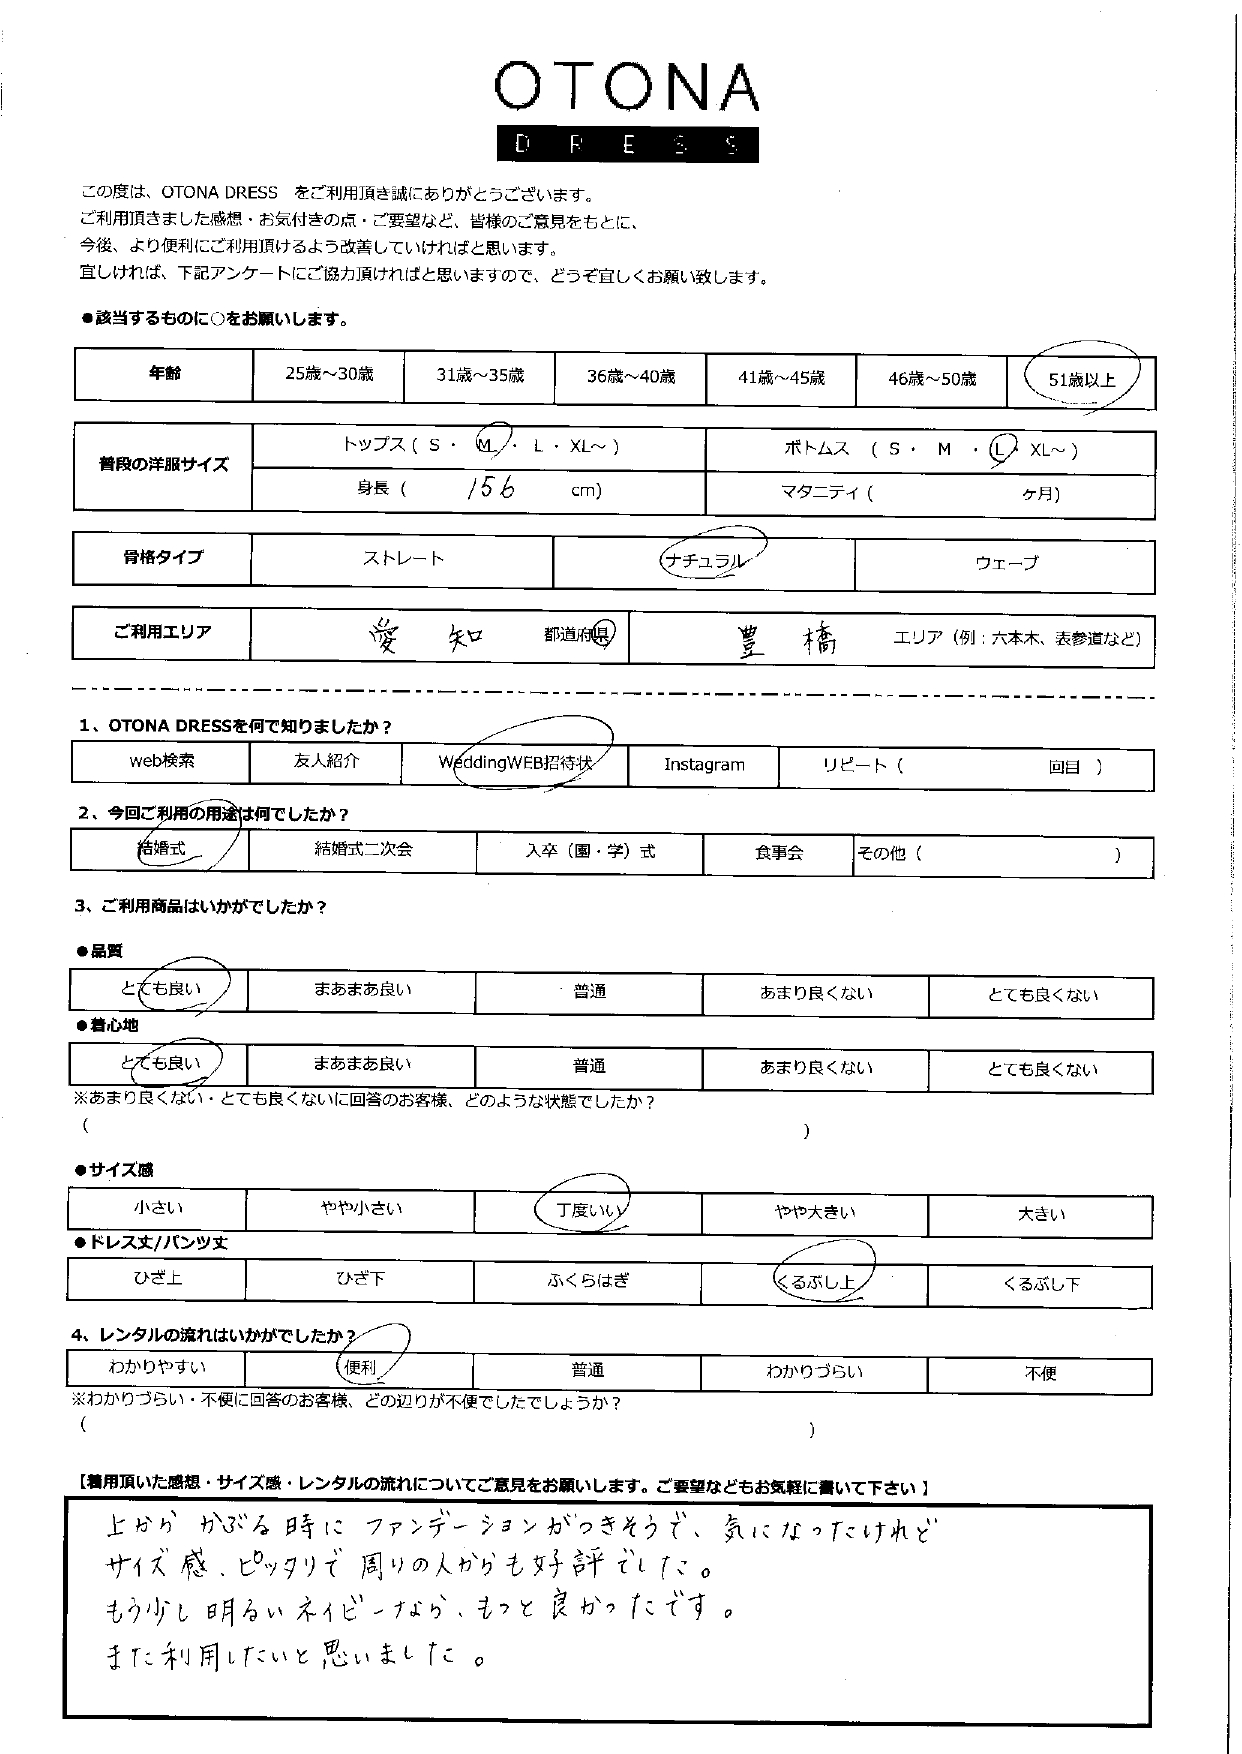 OTONA
DRESS
この度は、OTONA DRESS　をご利用頂き誠にありがとうございます。
ご利用頂きました感想・お気付きの点・ご要望など、皆様のご意見をもとに、
今後、より便利にご利用頂けるよう改善していければと思います。
宜しければ、下記アンケートにご協力頂ければと思いますので、どうぞ宜しくお願い致します。
●該当するものに○をお願いします。
年齢 25歳～30歳 31歳～35歳 36歳～40歳 41歳～45歳 46歳～50歳 51歳以上
普段の洋服サイズ トップス ( S ・ M ・ L ・ XL～ ) ボトムス ( S ・ M ・ L ・ XL～ )
身長 ( 156 cm) マタニティ ( ヶ月)
骨格タイプ ストレート ナチュラル ウェーブ
ご利用エリア 愛知 都道府県 豊橋 エリア（例：六本木、表参道など）
1、OTONA DRESSを何で知りましたか？
web検索 友人紹介 WeddingWEB招待状 Instagram リピート（ 回目 ）
2、今回ご利用の用途は何でしたか？
結婚式 結婚式二次会 入卒（園・学）式 食事会 その他（ ）
3、ご利用商品はいかがでしたか？
●品質
とても良い まあまあ良い 普通 あまり良くない とても良くない
●着心地
とても良い まあまあ良い 普通 あまり良くない とても良くない
※あまり良くない・とても良くないに回答のお客様、どのような状態でしたか？
（ ）
●サイズ感
小さい やや小さい 丁度いい やや大きい 大きい
●ドレス丈/パンツ丈
ひざ上 ひざ下 ふくらはぎ くるぶし上 くるぶし下
4、レンタルの流れはいかがでしたか？
わかりやすい 便利 普通 わかりづらい 不便
※わかりづらい・不便に回答のお客様、どの辺りが不便でしたでしょうか？
（ ）
【着用頂いた感想・サイズ感・レンタルの流れについてご意見をお願いします。ご要望などもお気軽に書いて下さい】
上から かぶる時に ファンデーションがつきそうで、気になったけれど
サイズ感、ピッタリで 周りの人からも好評でした。
もう少し明るいネイビーなら、もっと良かったです。
また利用したいと思いました。